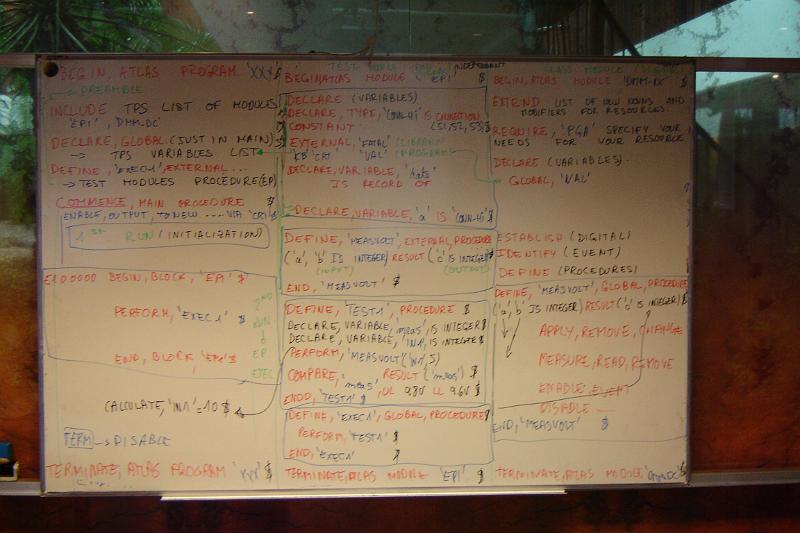 BEGIN, ATLAS PROGRAM 'XXX' $
PREAMBLE
INCLUDE TPS LIST OF MODULES
'EP1', 'DMM-DC'
DECLARE, GLOBAL (JUST IN MAIN)
→ TPS VARIABLES LIST
DEFINE, 'EXEC1', EXTERNAL...
→ TEST MODULES PROCEDURE (EP)
COMMENCE, MAIN PROCEDURE $
ENABLE, OUTPUT, TO NEW .... VIA 'CRT' $
1ST RUN (INITIALIZATION)
E100000 BEGIN, BLOCK, 'EP1' $
PERFORM, 'EXEC1' $
END, BLOCK 'EP1' $
2ND
RUN
EP
EXEC
CALCULATE, 'IN1' = 10 $
TERM → DISABLE
TERMINATE, ATLAS PROGRAM 'XXX' $
TEST
BEGIN ATLAS MODULE 'EP1' $
DECLARE (VARIABLES)
DECLARE, TYPE, 'CONN-HI' IS CONNECTION
CONSTANT (S1, S2, S3)
EXTERNAL, 'FATAL' (LIBRARY
'CRT' 'VAL' PROGRAM)
DECLARE, VARIABLE, 'data'
IS RECORD OF
DECLARE, VARIABLE, 'a' IS 'CONN-HI'
DEFINE, 'MEASVOLT', EXTERNAL, PROCEDURE
('a', 'b' IS INTEGER) RESULT ('c' IS INTEGER)
(INPUT) (OUTPUT)
END, 'MEASVOLT' $
DEFINE, 'TEST1', PROCEDURE $
DECLARE, VARIABLE, 'meas' IS INTEGER $
DECLARE, VARIABLE, 'IN1', IS INTEGER $
PERFORM, 'MEASVOLT' ('IN1', 5)
COMPARE, 'meas' RESULT ('meas') $
UL 9.8V LL 9.6V $
'TEST1',
DEFINE, 'EXEC1', GLOBAL, PROCEDURE $
PERFORM, 'TEST1' $
END, 'EXEC1' $
TERMINATE, ATLAS MODULE 'EP1' $
CLASS MODULE (DIGITAL)
BEGIN, ATLAS MODULE 'DMM-DC' $
EXTEND LIST OF NEW NOUNS AND
MODIFIERS FOR RESOURCES.
REQUIRE, 'PGA' SPECIFY YOUR
NEEDS FOR YOUR RESOURCE
DECLARE (VARIABLES).
GLOBAL, 'VAL'
ESTABLISH (DIGITAL)
IDENTIFY (EVENT)
DEFINE (PROCEDURES)
DEFINE, 'MEASVOLT', GLOBAL, PROCEDURE
('a', 'b' IS INTEGER) RESULT ('c' IS INTEGER) $
APPLY, REMOVE, CHANGE
MEASURE, READ, REMOVE
ENABLE EVENT
DISABLE
END, 'MEASVOLT' $
TERMINATE, ATLAS MODULE 'DMM-DC' $